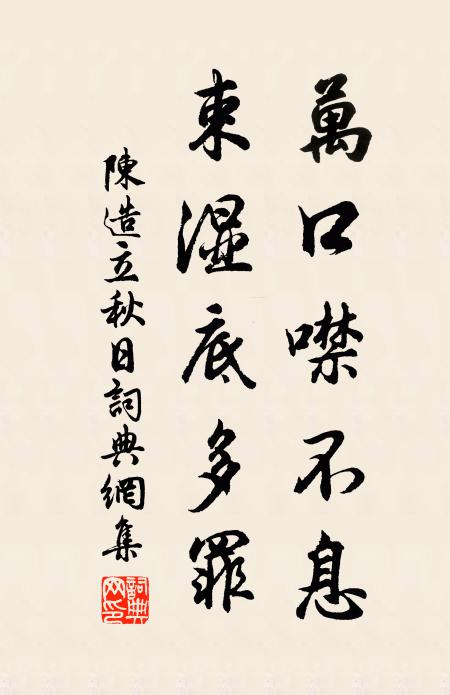 萬口噤不息
束濕底多罪
陳造立秋日詞典網集
詞典网印